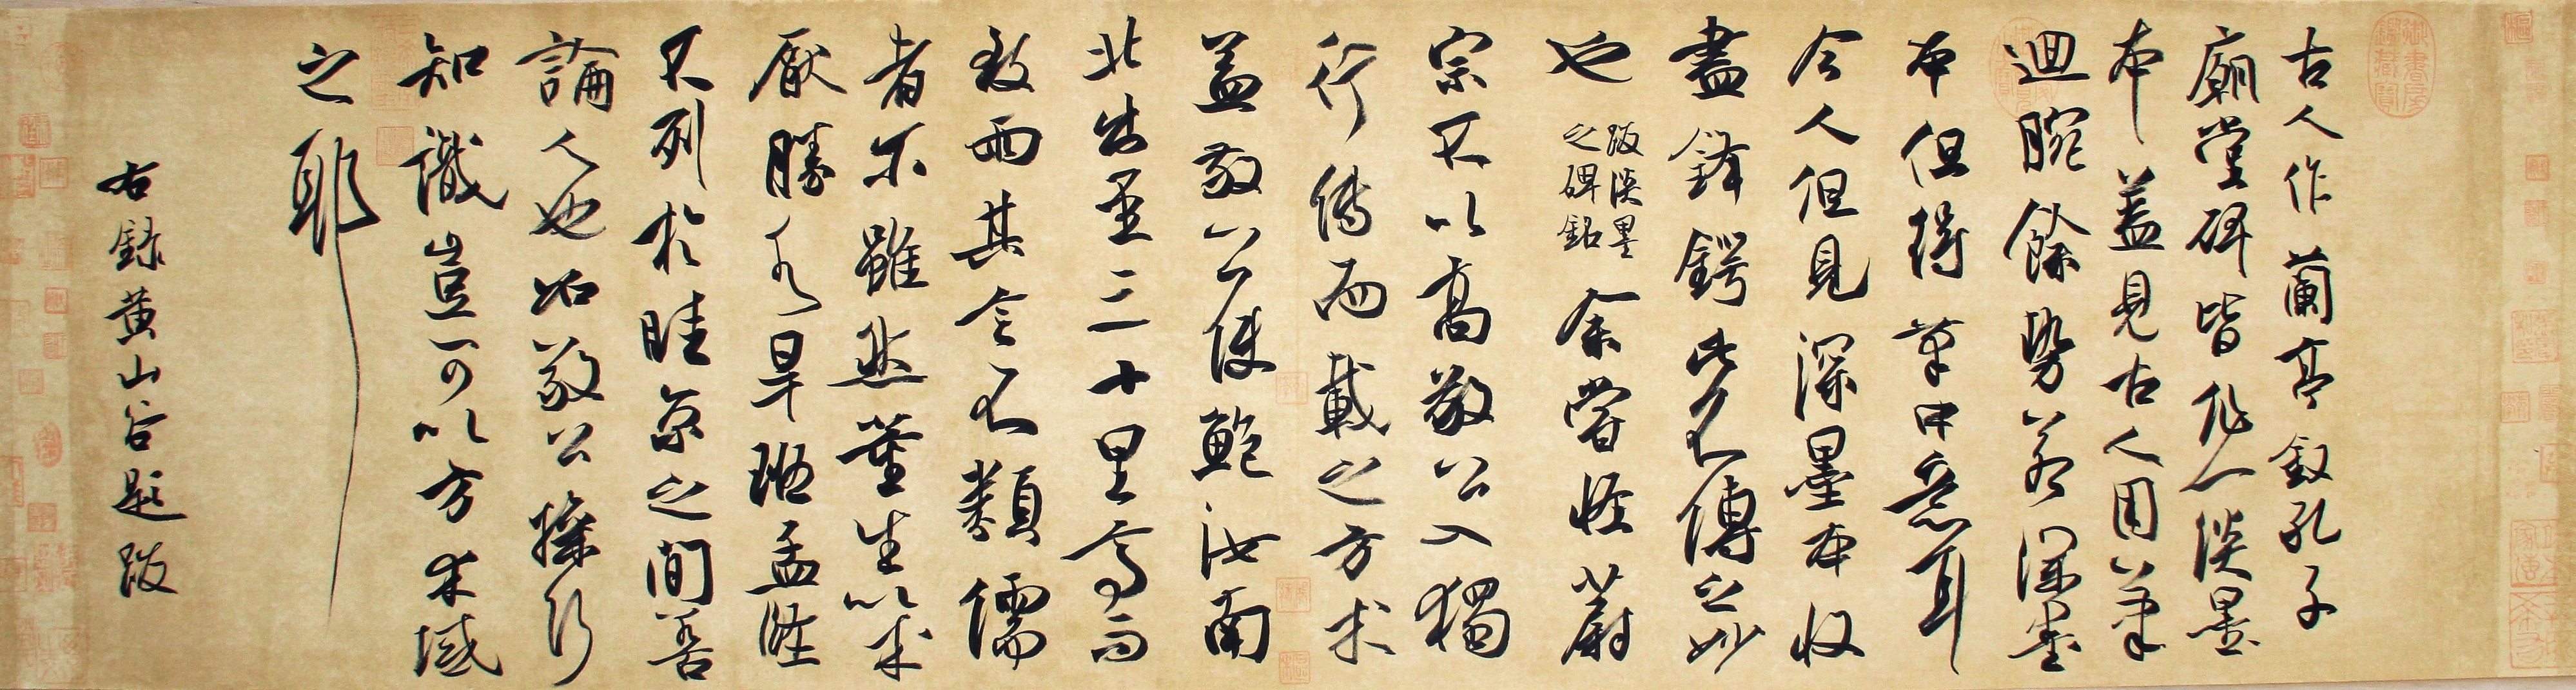 古人作蘭亭敘孔子
廟堂碑皆作一淡墨
本蓋見古人用筆
迴腕餘勢若深墨
本但得筆中意耳
今人但見深墨本收
盡鋒鍔此不傳之妙
也
跋淡墨
之碑銘
余嘗怪蔚
宗不以高敬公入獨
行傳而載之方术
蓋敬公使鮑汝南
北出至三十里亭而
致雨其言不類儒
者示雖然董生以求
厭勝水旱班孟堅
不列於眭京之間善
論人也如敬公操行
知識豈可以方术域
之耶
右錄黃山谷題跋